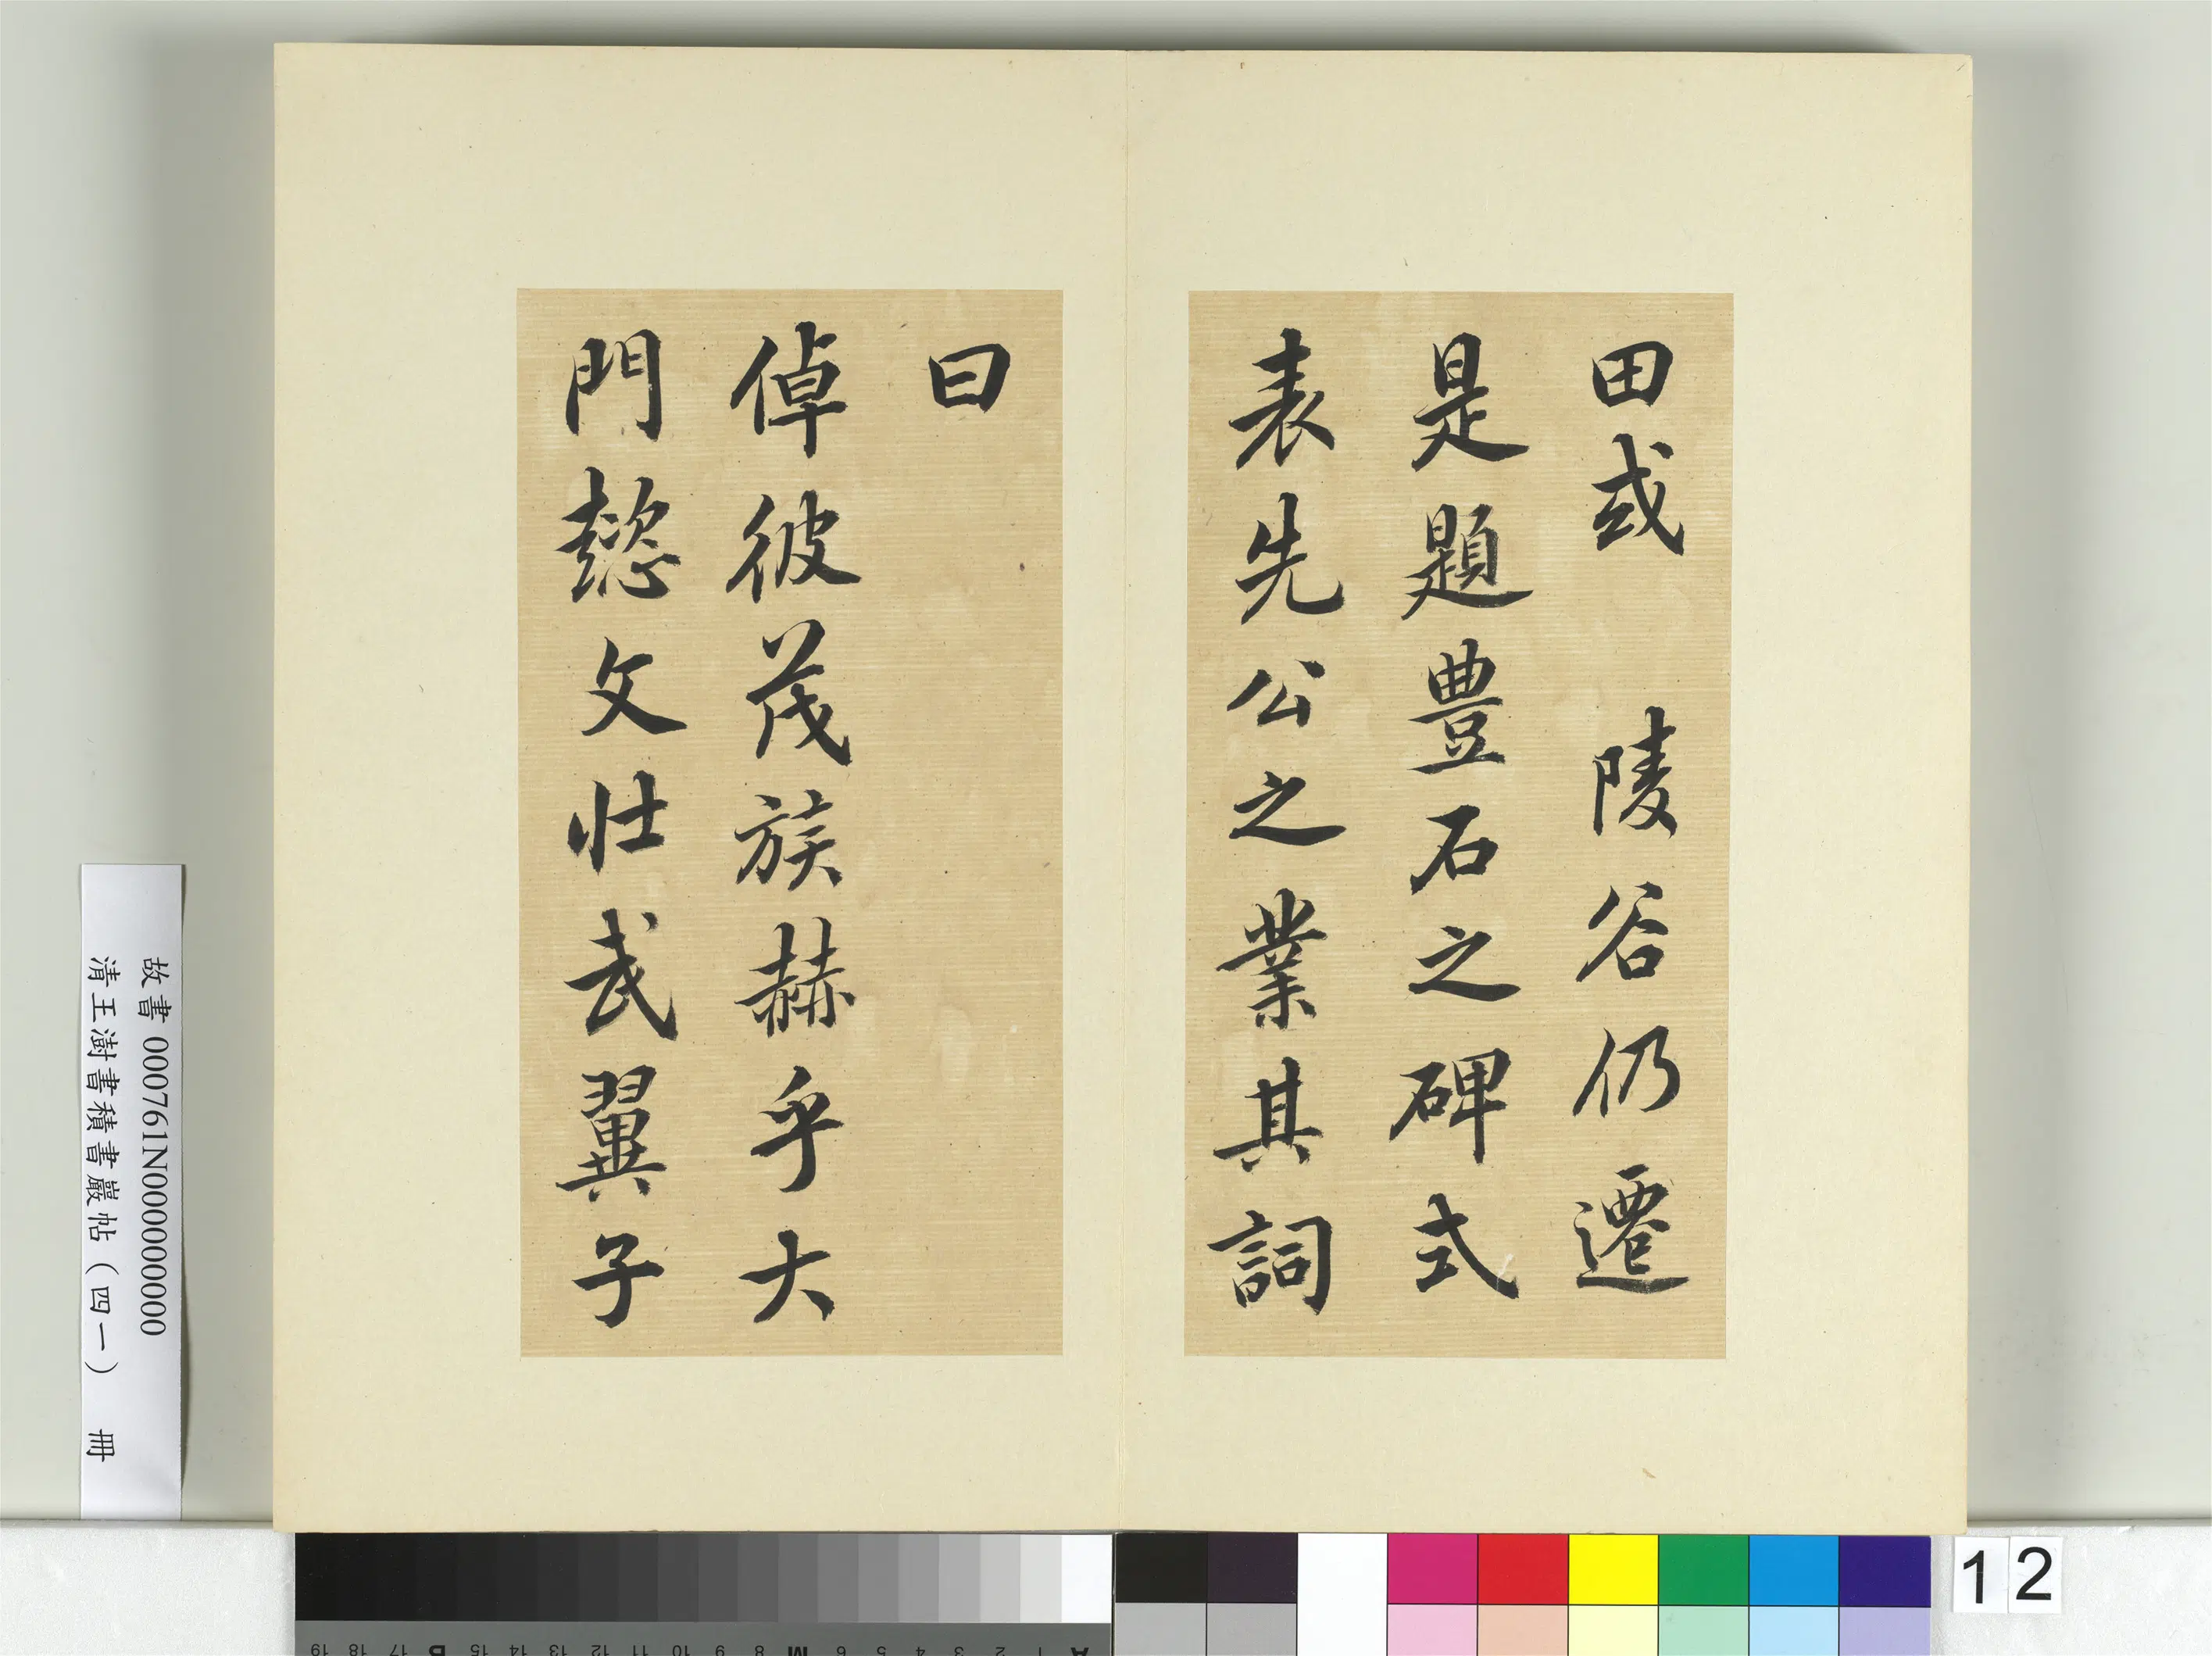 田或　陵谷仍遷
是題豊石之碑式
表先公之業其詞
曰
倬彼茂族赫乎大
門懿文壯武翼子
故書 000761N000000000
清王澍書積書巖帖（四一）　冊
12
A 1 2 3 4 5 6 7 8 M 9 10 11 12 13 14 15 B 17 18 19